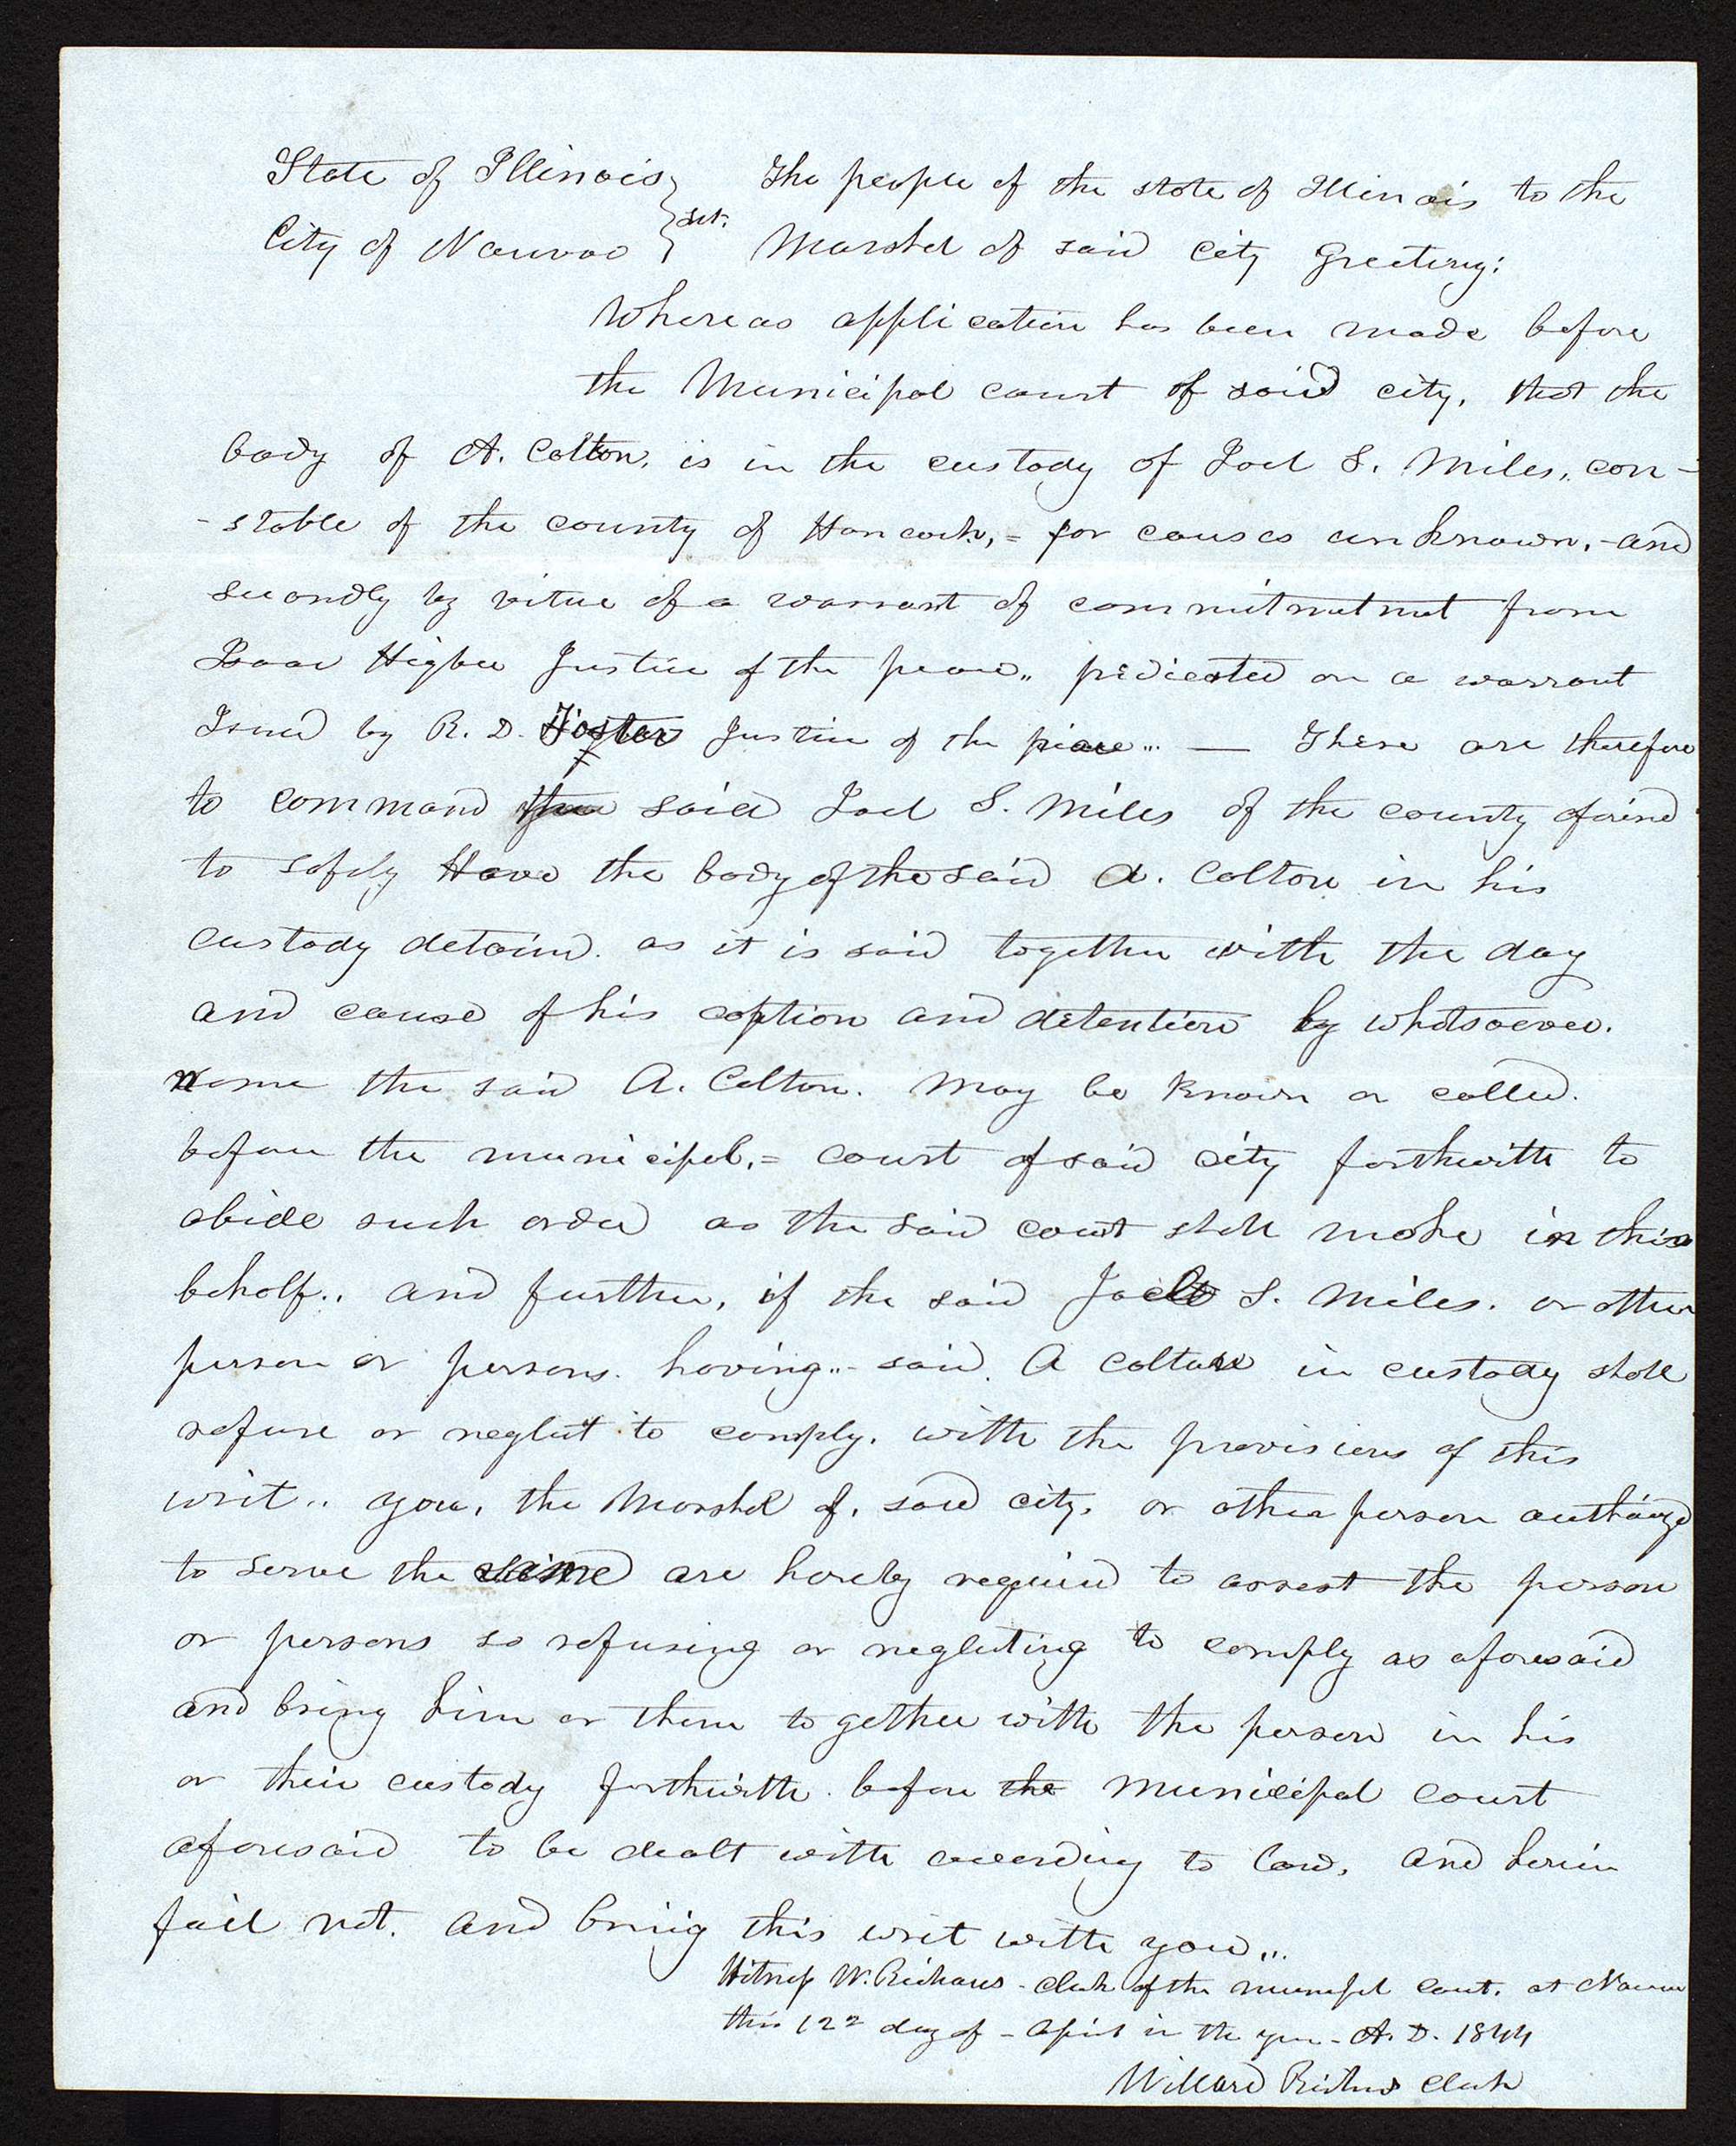 State of Illinois } sct. The people of the state of Illinois to the
City of Nauvoo } Marshal of said City Greeting:
Whereas application has been made before
the Municipal court of said city, that the
body of A. Colton, is in the custody of Joel S. Miles, con-
-stable of the county of Hancock,= for causes unknown,-and
secondly by vitue of a warrant of commitmetnet from
Isaac Higbee Justice of the peace,, predicated on a warrant
Issued by R. D. Foster Justice of the piace... — These are therefore
to command said Joel S. Miles of the county aforesd
to safely Have the body of the said A. Colton in his
custody detaind. as it is said together with the day
and cause of his caption and detention by whatsoever.
name the said A. Colton. May be known or called.
before the municipal,= court of said city forthwith to
abide such order as the said court shall make in this
behalf.. and further, if the said Joel S. Miles. or other
person or persons. having..- said. A Colton in custody shall
refuse or neglect to comply. with the provisions of this
writ.. you, the Marshal of, said city, or other person authorized
to serve the same are hereby required to arrest the person
or persons so refusing or neglecting to comply as aforesaid
and bring him or them to gether with the person in his
or their custody forthwith. before the Municipal court
aforesaid to be dealt with according to law, and herein
fail not. and bring this writ with you,..
Witness W. Richards - clerk of the municipal court. at Nauvoo
this 12th day of - April in the year - A. D. 1844
Willard Richards clerk